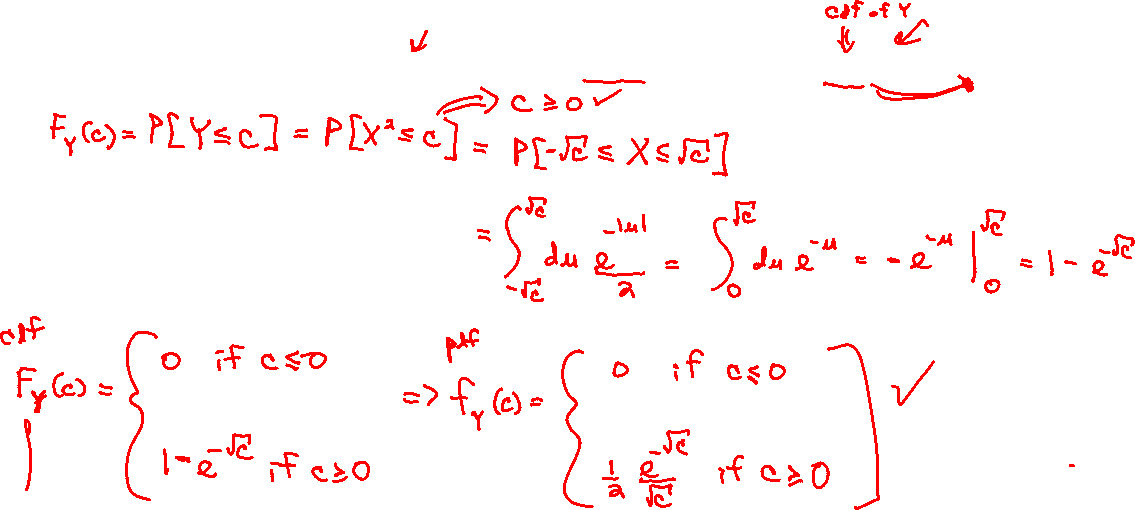 cdf of Y
c ≥ 0 ✓
F_Y(c) = P[Y ≤ c] = P[X² ≤ c] = P[-√c ≤ X ≤ √c]
= ∫_{-√c}^{√c} du e^{-|u|}/2 = ∫_0^{√c} du e^{-u} = -e^{-u} |_0^{√c} = 1 - e^{-√c}
cdf pdf
F_Y(c) = { 0 if c ≤ 0 => f_Y(c) = { 0 if c ≤ 0 ✓
1 - e^{-√c} if c ≥ 0 1/2 e^{-√c}/√c if c ≥ 0